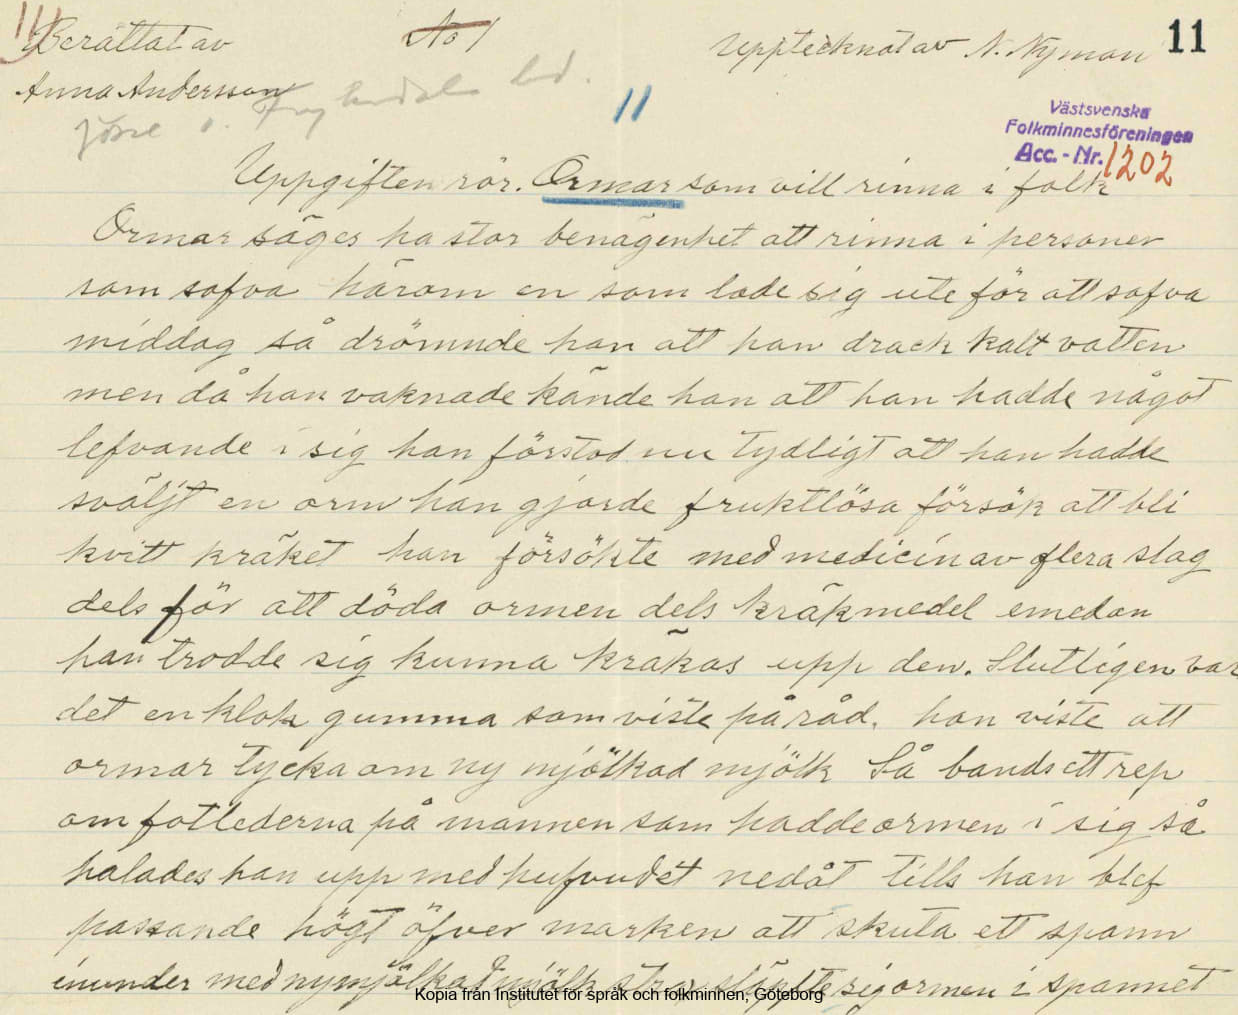 Berättat av No 1 Upptecknat av N. Nyman 11
Anna Andersson
11
Västsvenska
Folkminnesföreningen
Acc. - Nr. 1202
Uppgiften rör. Ormar som vill rinna i folk
Ormar säges ha stor benägenhet att rinna i personer
som sofva härom en som lade sig ute för att sofva
middag så drömnde han att han drack kalt vatten
men då han vaknade kände han att han hadde något
lefvande i sig han förstod nu tydligt att han hadde
sväljt en orm han gjorde fruktlösa försök att bli
kvitt kräket han försökte med medicin av flera slag
dels för att döda ormen dels kräkmedel emedan
han trodde sig kunna kräkas upp den. Slutligen var
det en klok gumma som viste på råd. hon viste att
ormar tycka om ny mjölkad mjölk Så bands ett rep
om fotlederna på mannen som hadde ormen i sig så
halades han upp med hufvudet nedåt tills han blef
passande högt öfver marken att skuta ett spann
inunder med nymjölkad mjölk strax släppte sig ormen i spannet
Kopia från Institutet för språk och folkminnen, Göteborg